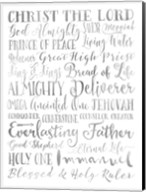 CHRIST THE LORD
God Almighty
PRINCE OF PEACE Living Water
Great High Priest
King of Kings Bread of Life
ALMIGHTY Deliverer
Anointed One JEHOVAH
COUNSELOR
Everlasting Father
Good Shepherd Eternal Life
HOLY ONE Immanuel
Blessed & Holy Ruler